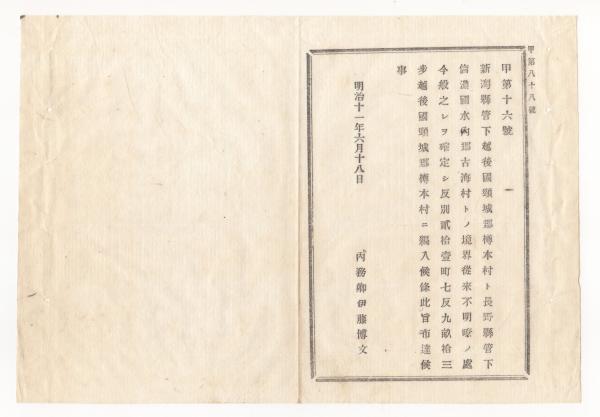 甲第八十八號
甲第十六號
新潟縣管下越後國頸城郡樽本村ト長野縣管下
信濃國水內郡古海村トノ境界從來不明瞭ノ處
今般之レヲ確定シ反別貳拾壹町七反九畝拾三
步越後國頸城郡樽本村ニ編入候條此旨布達候
事
明治十一年六月十八日
內務卿伊藤博文